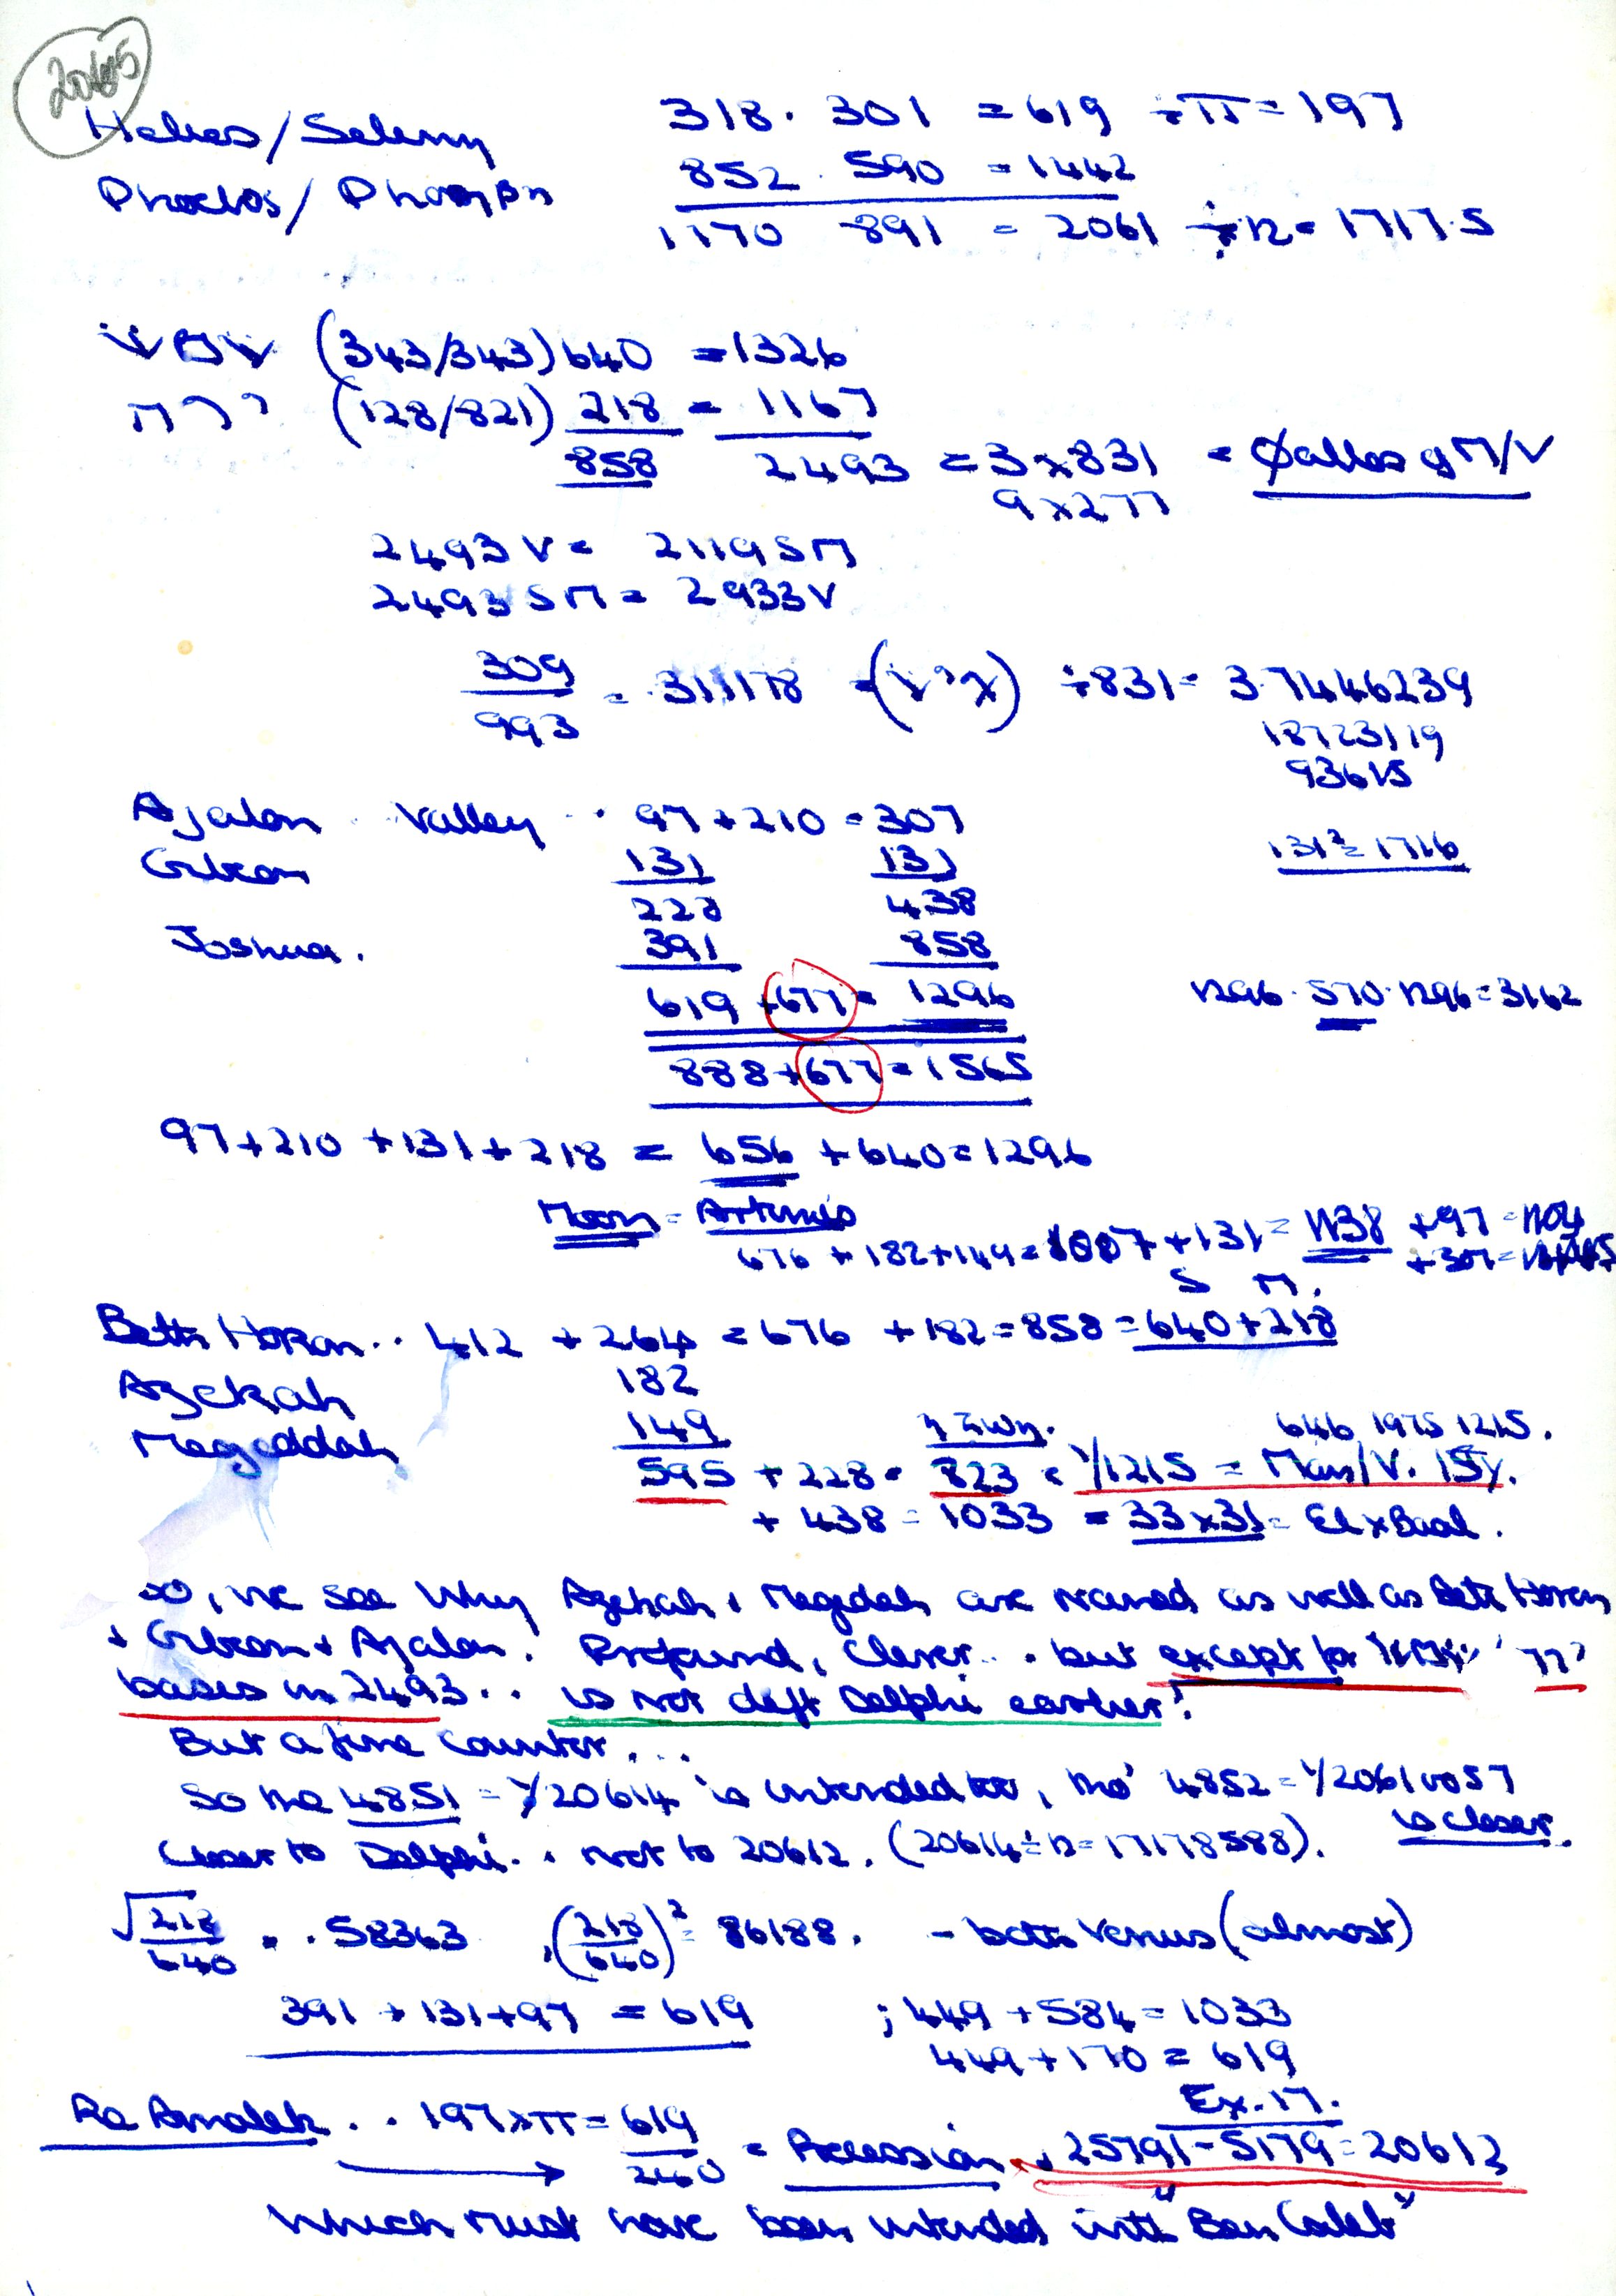 2065
Helios/Seleny 318 · 301 = 619 ÷π = 197
Phoebos/ 852 · 590 = 1442
1170 891 = 2061 ÷12 = 1717·5
שמש (343/343) 640 = 1326
ירח (128/821) 218 = 1167
858 2493 = 3 x 831 = Øallos of M/V
9 x 277
2493 V = 2119 SM
2493 SM = 2933 V
309/993 = ·311178 ÷831 = 3·7446239
18723119
93615
Ajalon Valley · · 97 + 210 = 307
131² = 1716
Gibeon 131 131
228 438
Joshua. 391 858
619 + 677 = 1296 1296 · 570 · 1296 = 3162
888 + 677 = 1565
97 + 210 + 131 + 218 = 656 + 640 = 1296
Moon = Artemis
676 + 182 + 149 = 1007 + 131 = 1138 + 97 =
+ 307 =
S M.
Beth Horon · · 412 + 264 = 676 + 182 = 858 = 640 + 218
Azekah 182
Megeddah 149 646 1975 1215.
595 + 228 = 823 = 1/1215 = Mars/V. 15y.
+ 438 = 1033 = 33 x 31 = El x Baal.
So, we see why Azekah + Megedah are named as well as Beth Horon
+ Gibeon + Ajalon! Profound, clever . . . but except for שמש ירח
bases in 2493 . . is not deft Delphi earlier!
But a fine counter . . .
So the 4851 = 1/20614 is intended too, tho' 4852 = 1/20610057
is closer.
Closer to Delphi . . not to 20612. (20614 ÷ 12 = 17178588).
√218/640 = ·58363 , (218/640)² = 86188. – both Venus (almost)
391 + 131 + 97 = 619 ; 449 + 584 = 1033
449 + 170 = 619
Ex. 17.
Re Amalek . . 197 x π = 619/240 = Precession . 25791 – 5179 = 20612
Which must have been intended with "Ben Caleb"